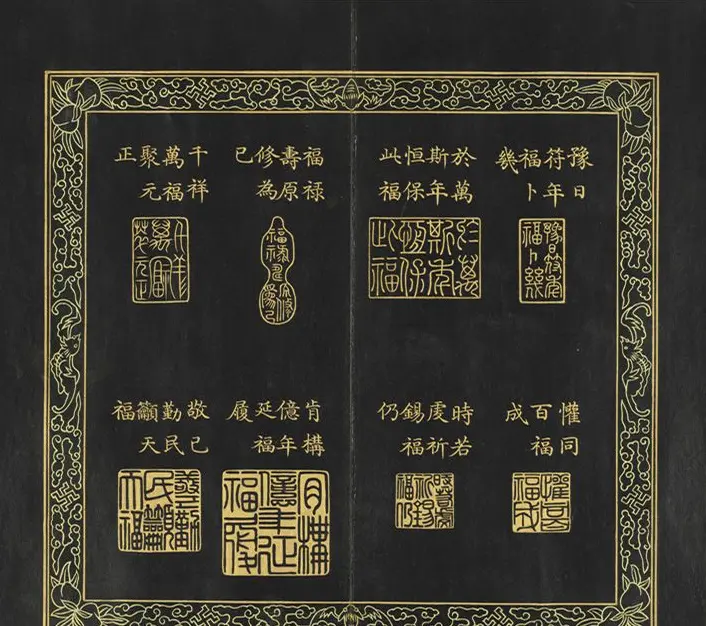 豫日符年福卜幾
於萬斯年恒保此福
福禄壽原修為已
千祥萬福聚元正
懽同百福成
時若虔祈錫福仍
肯搆億年延福履
敬已勤民籲天福